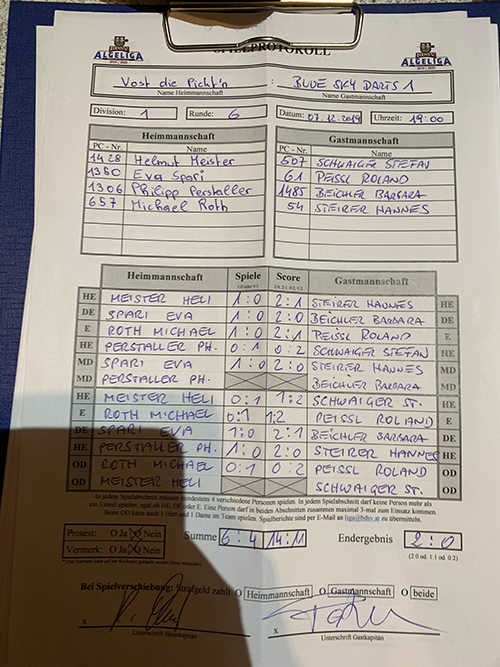 ALGELIGA ALGELIGA
SPIELPROTOKOLL
Vost die Picht'n : BLUE SKY DARTS 1
Name Heimmannschaft Name Gastmannschaft
Division: 1 Runde: 6 Datum: 07.12.2019 Uhrzeit: 19:00
Heimmannschaft Gastmannschaft
PC - Nr. Name PC - Nr. Name
1428 Helmut Meister 507 SCHWAIGER STEFAN
1350 Eva Spari 61 PEISSL ROLAND
1306 Philipp Perstaller 1485 BEICHLER BARBARA
657 Michael Roth 54 STEIRER HANNES
Heimmannschaft Spiele Score Gastmannschaft
1:0 oder 0:1 2:0, 2:1, 0:2, 1:2
HE MEISTER HELI 1:0 2:1 STEIRER HANNES HE
DE SPARI EVA 1:0 2:0 BEICHLER BARBARA DE
E ROTH MICHAEL 1:0 2:1 PEISSL ROLAND E
HE PERSTALLER PH. 0:1 0:2 SCHWAIGER STEFAN HE
MD SPARI EVA 1:0 2:0 STEIRER HANNES MD
MD PERSTALLER PH. BEICHLER BARBARA MD
HE MEISTER HELI 0:1 1:2 SCHWAIGER ST. HE
E ROTH MICHAEL 0:1 1:2 PEISSL ROLAND E
DE SPARI EVA 1:0 2:1 BEICHLER BARBARA DE
HE PERSTALLER PH. 1:0 2:0 STEIRER HANNES HE
OD ROTH MICHAEL 0:1 0:2 PEISSL ROLAND OD
OD MEISTER HELI SCHWAIGER ST. OD
In jedem Spielabschnitt müssen mindestens 4 verschiedene Personen spielen. In jedem Spielabschnitt darf keine Person mehr als
ein Einzel spielen, egal ob HE, DE oder E. Eine Person darf in beiden Abschnitten zusammen maximal 3-mal zum Einsatz kommen.
Beim OD kann auch 1 Herr und 1 Dame im Team spielen. Spielberichte sind per E-Mail an liga@bdsv.at zu übermitteln.
Protest: O Ja O Nein Summe 6:4 14:11 Endergebnis 2:0
Vermerk: O Ja O Nein (2:0 od. 1:1 od. 0:2)
Bei Spielverschiebung: Strafgeld zahlt O Heimmannschaft O Gastmannschaft O beide
x x
Unterschrift Heimkapitän Unterschrift Gastkapitän